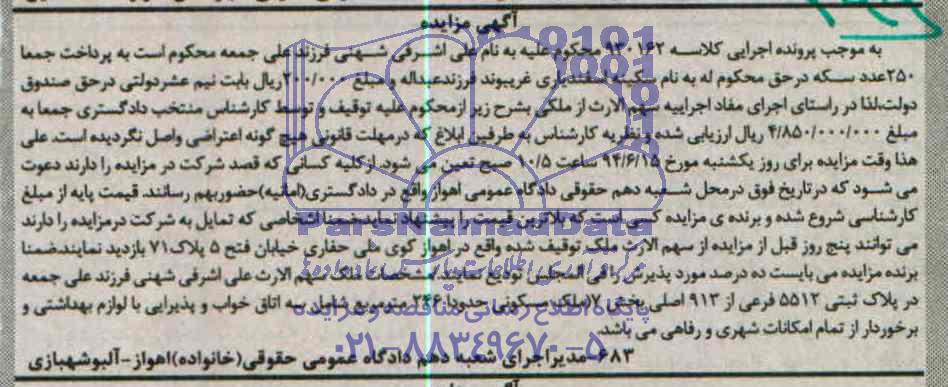 آگهی مزایده
به موجب پرونده اجرایی کلاسه ۹۳۰۱۶۲ محکوم علیه به نام علی اشرفی شهنی فرزند علی جمعه محکوم است به پرداخت جمعا
۲۵۰عدد سکه درحق محکوم له به نام سکینه اسفندیاری غریبوند فرزندعبداله و مبلغ ۲۰۰/۰۰۰ریال بابت نیم عشردولتی درحق صندوق
دولت،لذا در راستای اجرای مفاد اجراییه سهم الارث از ملکی بشرح زیر ازمحکوم علیه توقیف و توسط کارشناس منتخب دادگستری جمعا به
مبلغ ۴/۸۵۰/۰۰۰/۰۰۰ ریال ارزیابی شده و نظریه کارشناس به طرفین ابلاغ که درمهلت قانونی هیچ گونه اعتراضی واصل نگردیده است. علی
هذا وقت مزایده برای روز یکشنبه مورخ ۹۴/۶/۱۵ ساعت ۱۰/۵ صبح تعیین می شود. ازکلیه کسانی که قصد شرکت در مزایده را دارند دعوت
می شود که درتاریخ فوق درمحل شعبه دهم حقوقی دادگاه عمومی اهواز واقع در دادگستری(امانیه)حضوربهم رسانند. قیمت پایه از مبلغ
کارشناسی شروع شده و برنده ی مزایده کسی است که بالاترین قیمت را پیشنهاد نماید.ضمنا اشخاصی که تمایل به شرکت درمزایده را دارند
می توانند پنج روز قبل از مزایده از سهم الارث ملک توقیف شده واقع در اهواز کوی ملی حفاری خیابان فتح ۵ پلاک۷۱ بازدید نمایند.ضمنا
برنده مزایده می بایست ده درصد مورد پذیرش را فی المجلس تودیع نماید. مشخصات ملک: سهم الارث علی اشرفی شهنی فرزند علی جمعه
در پلاک ثبتی ۵۵۱۲ فرعی از ۹۱۳ اصلی بخش ۷(ملک مسکونی حدودا ۲۴۶ مترمربع شامل سه اتاق خواب و پذیرایی با لوازم بهداشتی و
برخوردار از تمام امکانات شهری و رفاهی می باشد.
۶۸۳- مدیراجرای شعبه دهم دادگاه عمومی حقوقی(خانواده)اهواز-آلبوشهبازی
ParsNamadData
پایگاه اطلاع رسانی مناقصه و مزایده
۰۲۱-۸۸۳۴۹۶۷۰-۵